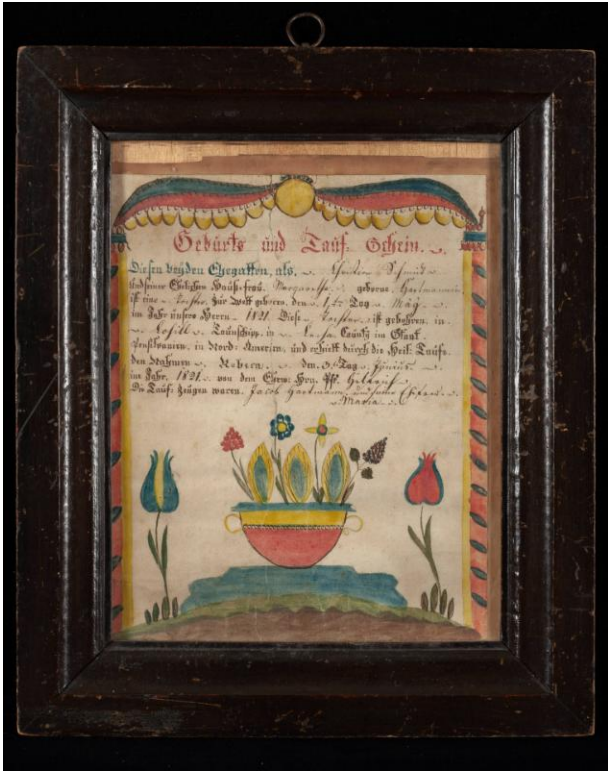 Geburts und Tauf Schein.
Diesen beyden Ehegatten, als, Schmid
und seiner Ehelichen Hauß-frau, Margaretha, geborne Hartmannin
ist eine Tochter zur Welt geboren, den 1ten Tag May
im Jahr unsers Herrn 1821. Diese Tochter ist gebohren in
Taunschip, in Caunty im Staat
Pensilvanien, in Nord America, und erhielt durch die Heil. Taufe
den Nahmen den 3. Tag Junius
im Jahr 1821, von dem Ehrw. Hrn. Pf. Helfrich
Die Tauf-zeugen waren, Jacob Hartmann, und seine
Maria